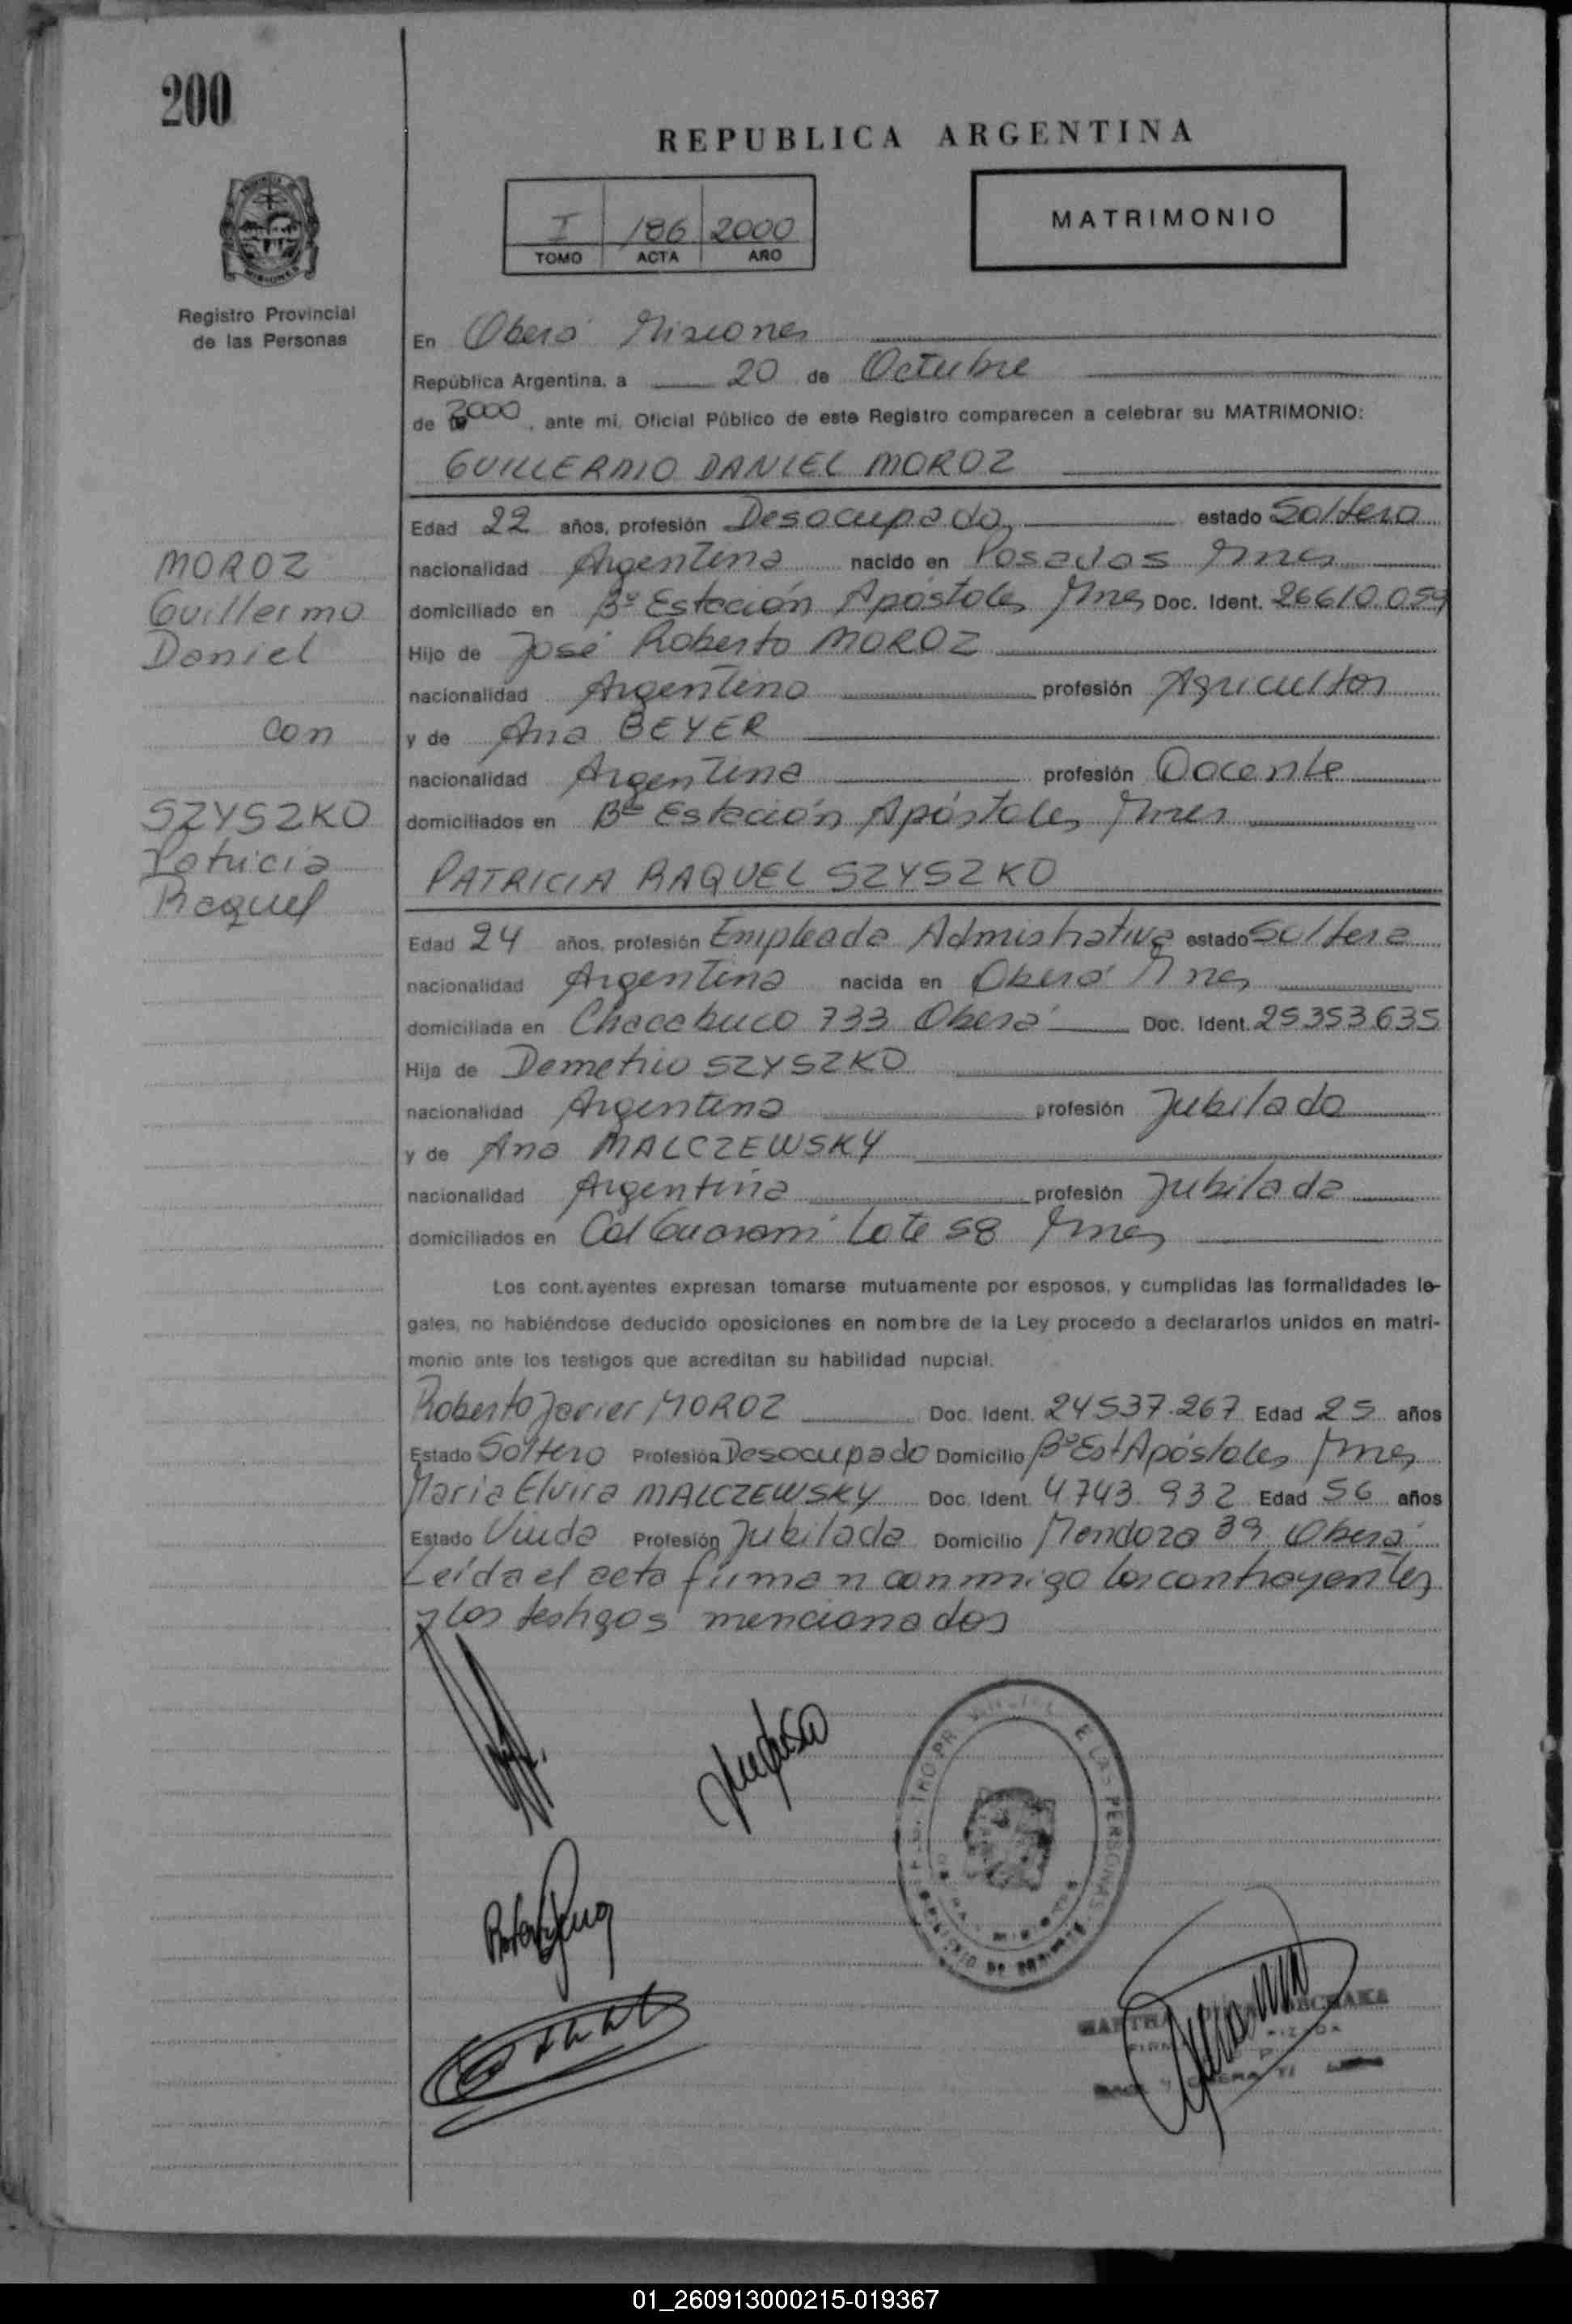 200
REPUBLICA ARGENTINA
I 186 2000
TOMO ACTA AÑO
MATRIMONIO
Registro Provincial
de las Personas
En Oberá Misiones
República Argentina, a 20 de Octubre
de 2000, ante mi, Oficial Público de este Registro comparecen a celebrar su MATRIMONIO:
GUILLERMO DANIEL MOROZ
Edad 22 años, profesión Desocupado estado Soltero
nacionalidad Argentina nacido en Posadas Mnes
domiciliado en Bº Estación Apóstoles Mnes Doc. Ident. 26610.059
Hijo de José Roberto MOROZ
nacionalidad Argentino profesión Agricultor
y de Ana BEYER
nacionalidad Argentina profesión Docente
domiciliados en Bº Estación Apóstoles Mnes
MOROZ
Guillermo
Daniel
con
SZYSZKO
Patricia
Raquel
PATRICIA RAQUEL SZYSZKO
Edad 24 años, profesión Empleada Admistrativa estado Soltera
nacionalidad Argentina nacida en Oberá Mnes
domiciliada en Chacabuco 733 Oberá Doc. Ident. 25353635
Hija de Demetrio SZYSZKO
nacionalidad Argentina profesión Jubilado
y de Ana MALCZEWSKY
nacionalidad Argentina profesión Jubilada
domiciliados en Col Guaraní Lote 58 Mnes
Los cont.ayentes expresan tomarse mutuamente por esposos, y cumplidas las formalidades le-
gales, no habiéndose deducido oposiciones en nombre de la Ley procedo a declararlos unidos en matri-
monio ante los testigos que acreditan su habilidad nupcial.
Roberto Javier MOROZ Doc. Ident. 24537.267 Edad 25 años
Estado Soltero Profesión Desocupado Domicilio Bº Est Apóstoles Mnes
Maria Elvira MALCZEWSKY Doc. Ident. 4743.932 Edad 56 años
Estado Viuda Profesión Jubilada Domicilio Mendoza 39 Oberá
Leída el acta firman conmigo los contrayentes
y los testigos mencionados
E LAS PERSONAS
MARTHA
01_260913000215-019367